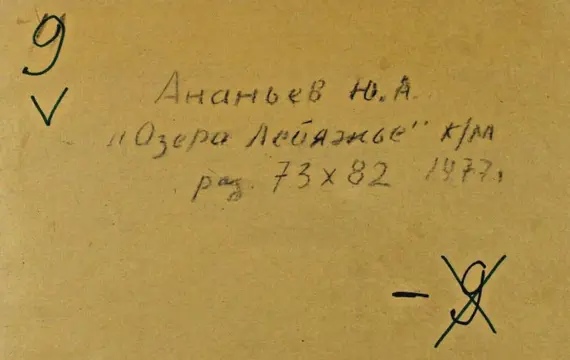 9
Ананьев Ю.А.
"Озеро Лебяжье" к/м
раз. 73x82 1977г.
- 9